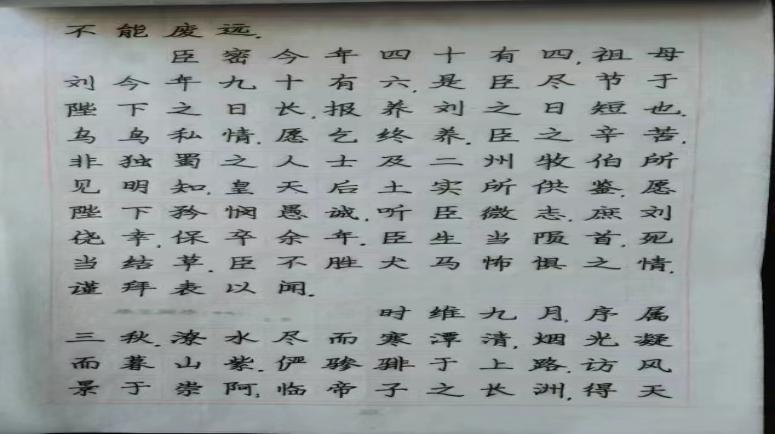 不能废远.
臣密今年四十有四.祖母
刘今年九十有六.是臣尽节于
陛下之日长.报养刘之日短也.
乌鸟私情.愿乞终养.臣之辛苦.
非独蜀之人士及二州牧伯所
见明知.皇天后土实所供鉴.愿
陛下矜悯愚诚.听臣微志.庶刘
侥幸.保卒余年.臣生当陨首.死
当结草.臣不胜犬马怖惧之情.
谨拜表以闻.
时维九月.序属
三秋.潦水尽而寒潭清.烟光凝
而暮山紫.俨骖騑于上路.访风
景于崇阿;临帝子之长洲.得天